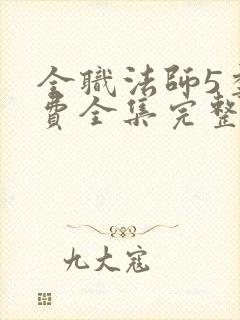 全職法師5
費全集完整
九大寇